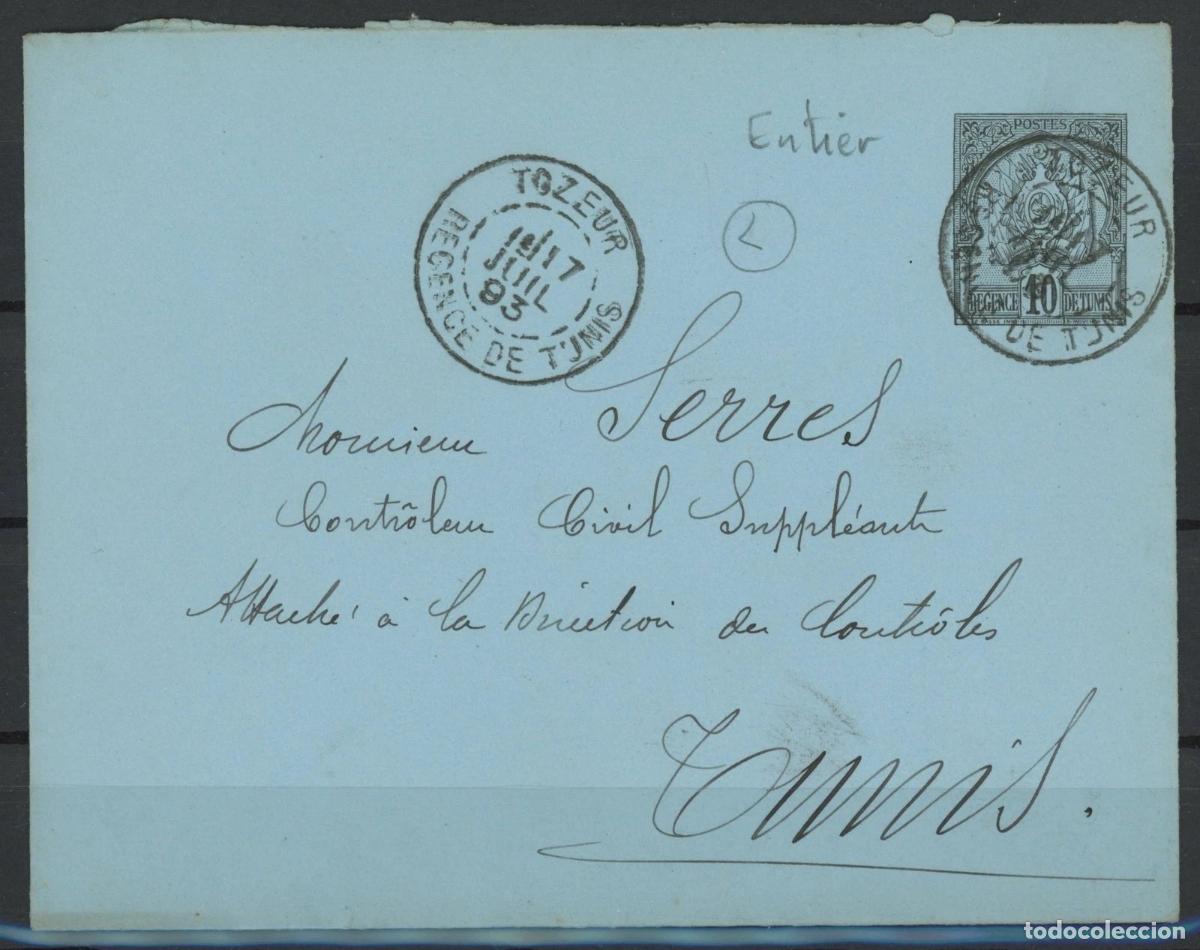 Entier
POSTES
REGENCE 10 DE TUNIS
TOZEUR
17
JUIL
93
REGENCE DE TUNIS
TOZEUR
DE TUNIS
Monsieur Serres
Contrôleur Civil Suppléant
Attaché à la Direction des Contrôles
Tunis.
todocoleccion